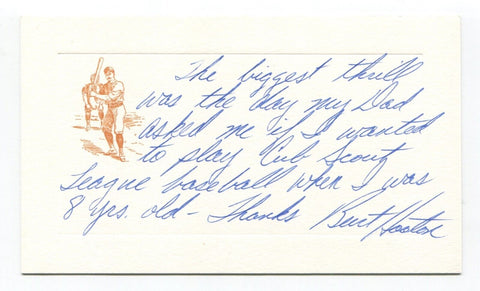 The biggest thrill
was the day my Dad
asked me if I wanted
to play Cub Scout
League baseball when I was
8 yrs. old - Thanks Burt Hooton